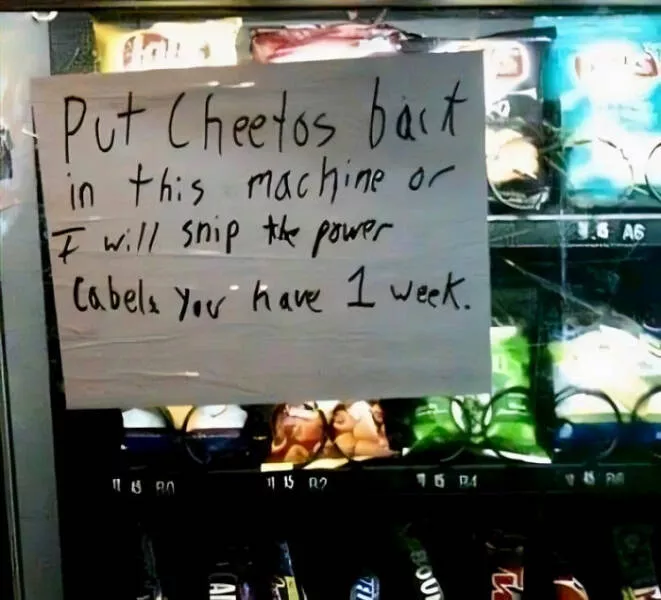 Put Cheetos back
in this machine or
I will snip the power
Cabels You have 1 week.
A6